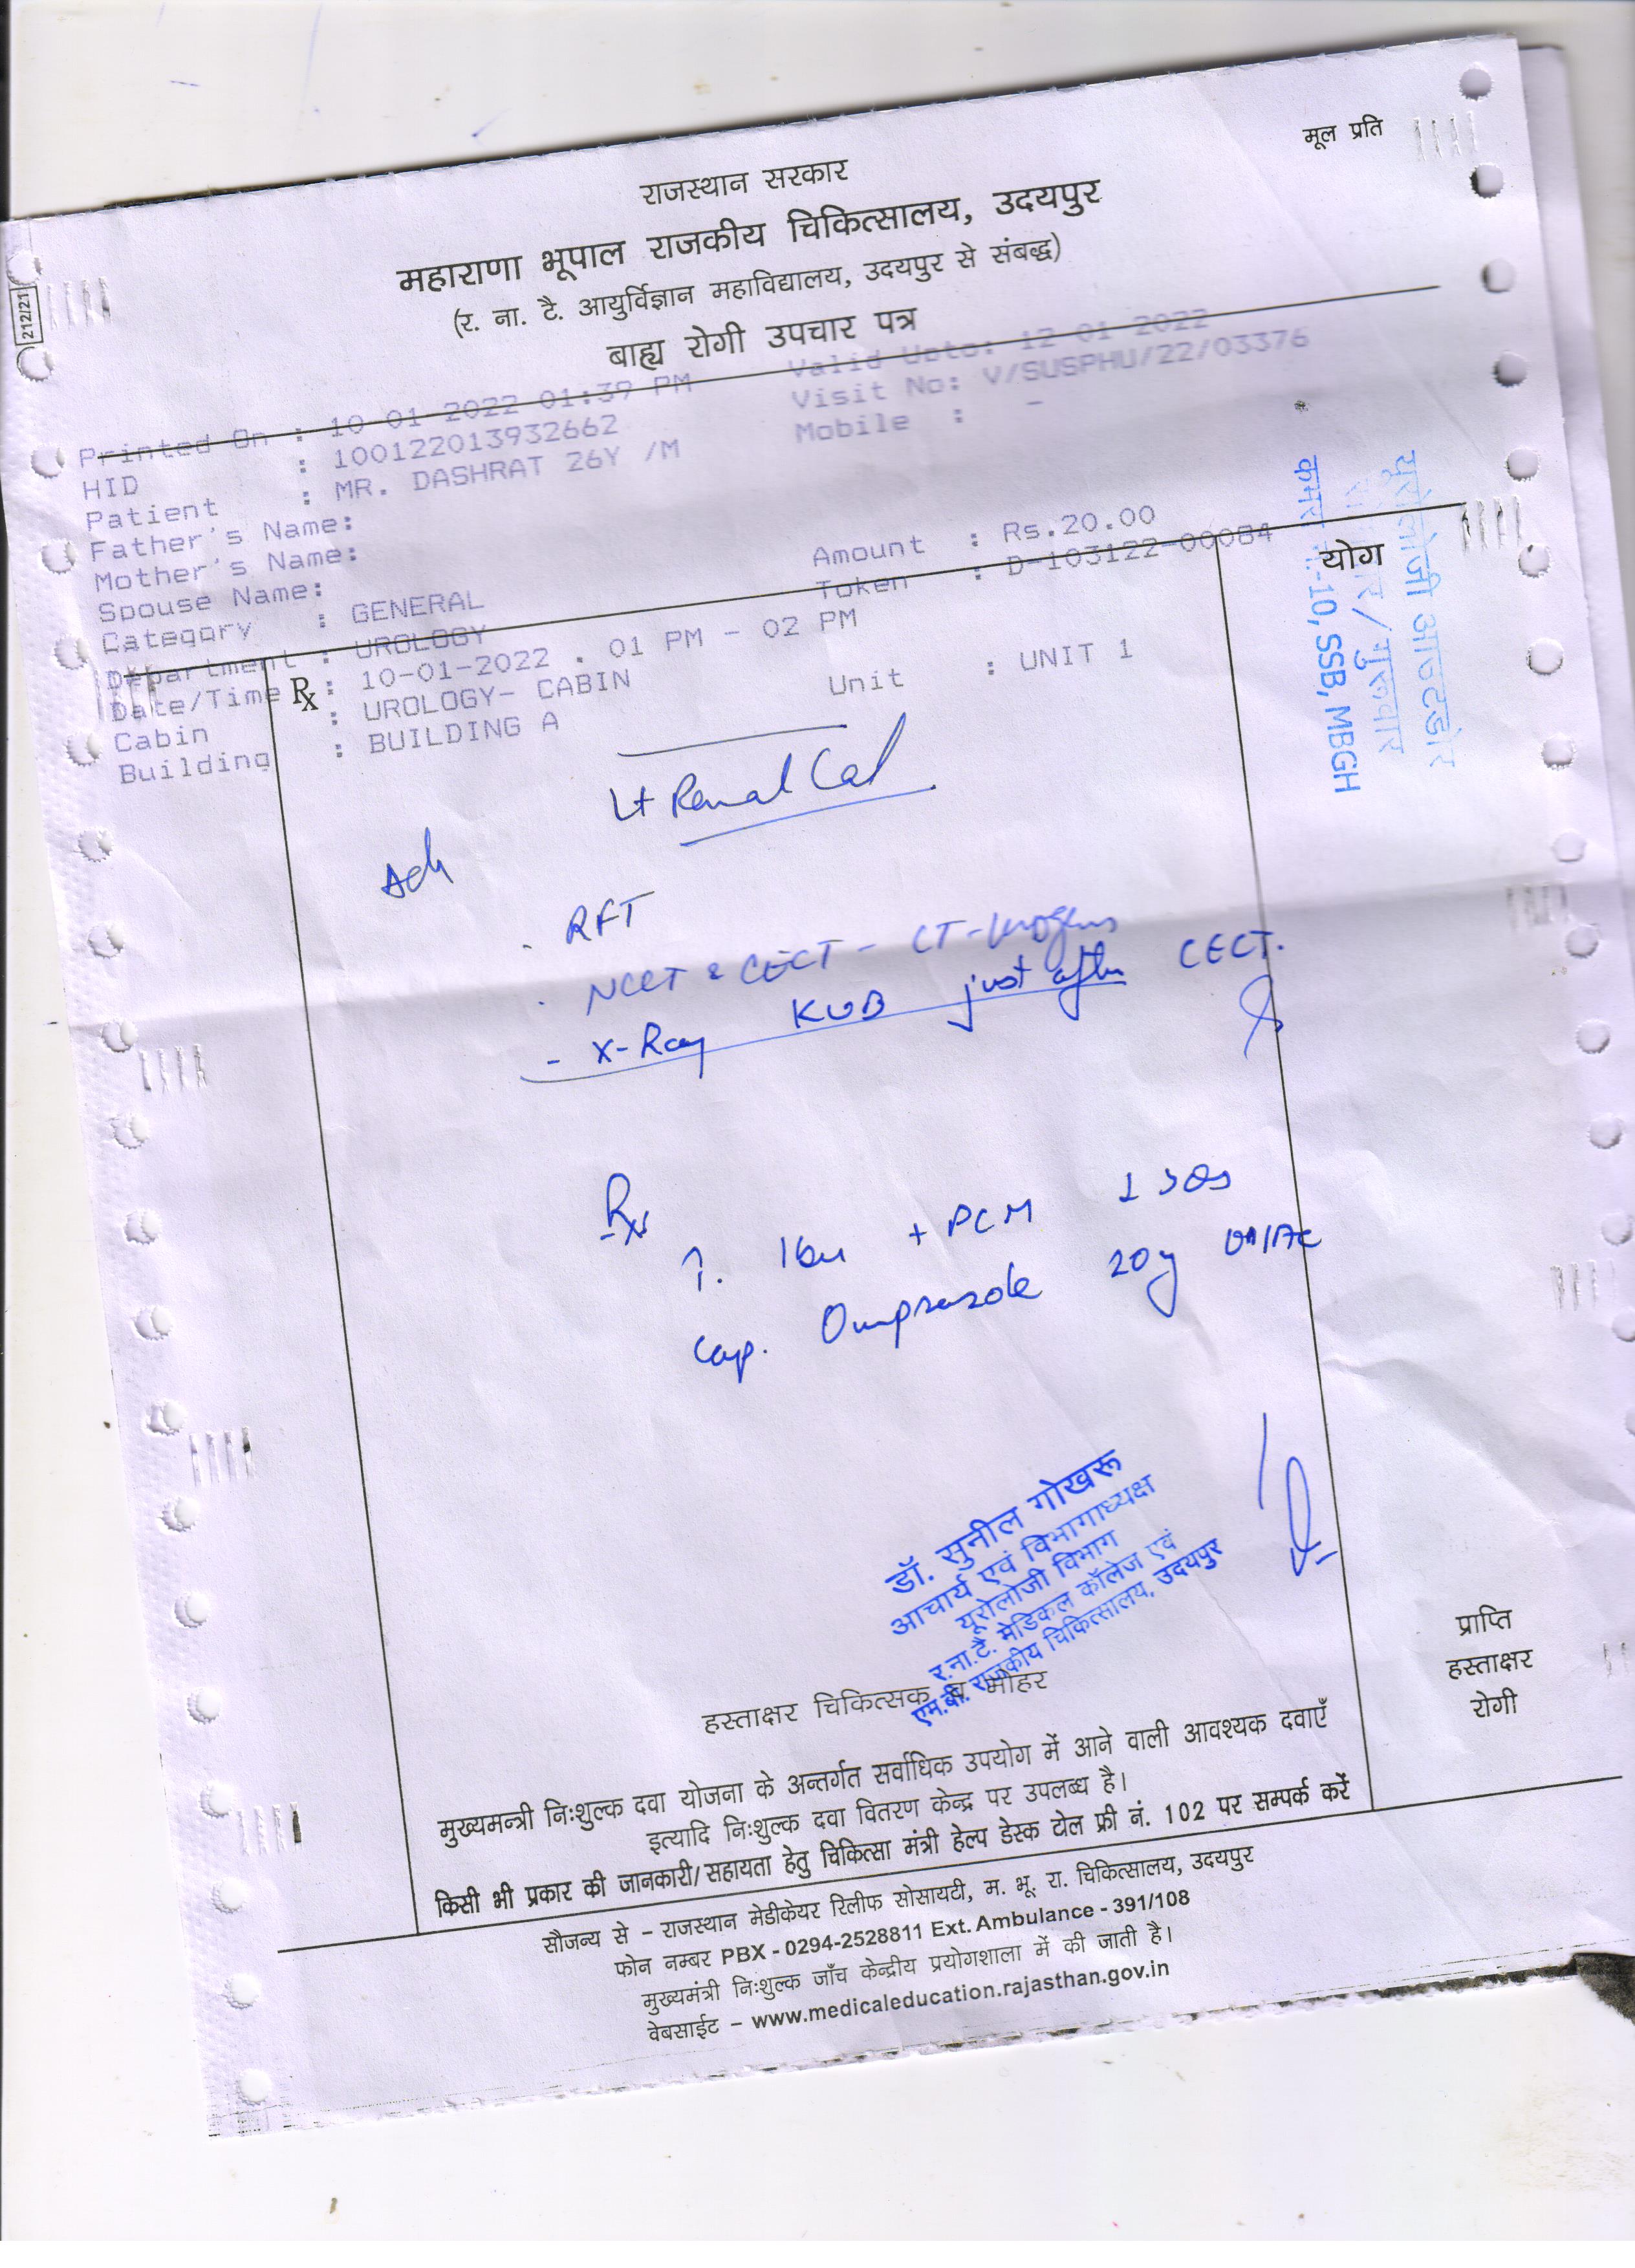 मूल प्रति
राजस्थान सरकार
महाराणा भूपाल राजकीय चिकित्सालय, उदयपुर
(र. ना. टै. आयुर्विज्ञान महाविद्यालय, उदयपुर से संबद्ध)
बाह्य रोगी उपचार पत्र
212/21
Printed On : 10-01-2022 01:39 PM Valid Upto: 12-01-2022
HID : 100122013932662 Visit No: V/SUSPHU/22/03376
Patient : MR. DASHRAT 26Y /M Mobile : -
Father's Name:
Mother's Name:
Spouse Name: Amount : Rs.20.00
Category : GENERAL Token : D-103122-00084
Department : UROLOGY
Date/Time : 10-01-2022 . 01 PM - 02 PM
Cabin : UROLOGY- CABIN Unit : UNIT 1
Building : BUILDING A
योग
यूरोलोजी आउटडोर
/ गुरुवार
-10, SSB, MBGH
Rx
Lt Renal Cal
Adv
. RFT
. NCCT & CECT - CT-
- X-Ray KUB just after CECT.
Rx
T. Ibu + PCM 1 SOS
Cap. Omeprazole 20
डॉ. सुनील गोखरू
आचार्य एवं विभागाध्यक्ष
यूरोलोजी विभाग
र.ना.टै. मेडिकल कॉलेज एवं
एम.बी. राजकीय चिकित्सालय, उदयपुर
हस्ताक्षर चिकित्सक व मोहर
प्राप्ति
हस्ताक्षर
रोगी
मुख्यमन्त्री निःशुल्क दवा योजना के अन्तर्गत सर्वाधिक उपयोग में आने वाली आवश्यक दवाएँ
इत्यादि निःशुल्क दवा वितरण केन्द्र पर उपलब्ध है।
किसी भी प्रकार की जानकारी/सहायता हेतु चिकित्सा मंत्री हेल्प डेस्क टोल फ्री नं. 102 पर सम्पर्क करें
सौजन्य से – राजस्थान मेडीकेयर रिलीफ सोसायटी, म. भू. रा. चिकित्सालय, उदयपुर
फोन नम्बर PBX - 0294-2528811 Ext. Ambulance - 391/108
मुख्यमंत्री निःशुल्क जाँच केन्द्रीय प्रयोगशाला में की जाती है।
वेबसाईट – www.medicaleducation.rajasthan.gov.in